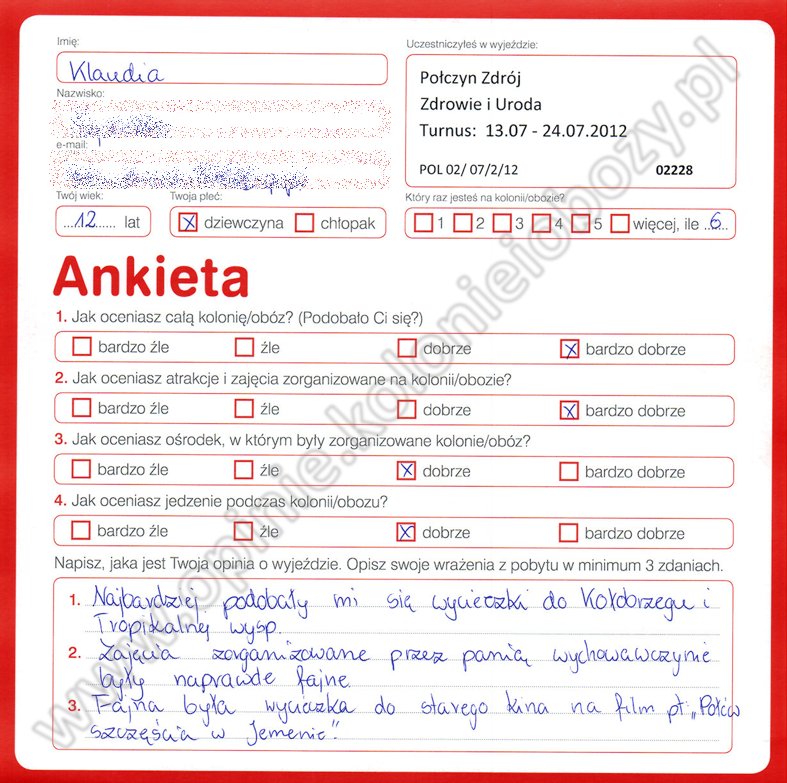 Imię:
Klaudia
Nazwisko:
e-mail:
Twój wiek:
...12...... lat
Twoja płeć:
x dziewczyna chłopak
Uczestniczyłeś w wyjeździe:
Połczyn Zdrój
Zdrowie i Uroda
Turnus: 13.07 - 24.07.2012
POL 02/ 07/2/12 02228
Który raz jesteś na kolonii/obozie?
1 2 3 4 5 więcej, ile ..6...
Ankieta
1. Jak oceniasz całą kolonię/obóz? (Podobało Ci się?)
bardzo źle źle dobrze x bardzo dobrze
2. Jak oceniasz atrakcje i zajęcia zorganizowane na kolonii/obozie?
bardzo źle źle dobrze x bardzo dobrze
3. Jak oceniasz ośrodek, w którym były zorganizowane kolonie/obóz?
bardzo źle źle x dobrze bardzo dobrze
4. Jak oceniasz jedzenie podczas kolonii/obozu?
bardzo źle źle x dobrze bardzo dobrze
Napisz, jaka jest Twoja opinia o wyjeździe. Opisz swoje wrażenia z pobytu w minimum 3 zdaniach.
1. Najbardziej podobały mi się wycieczki do Kołobrzegu i
Tropikalnej wysp.
2. Zajęcia zorganizowane przez panią wychowawczynię
były naprawde fajne.
3. Fajna była wycieczka do starego kina na film pt. „Połów
szczęścia w Jemenie".
www.opinie.kolonieiobozy.pl